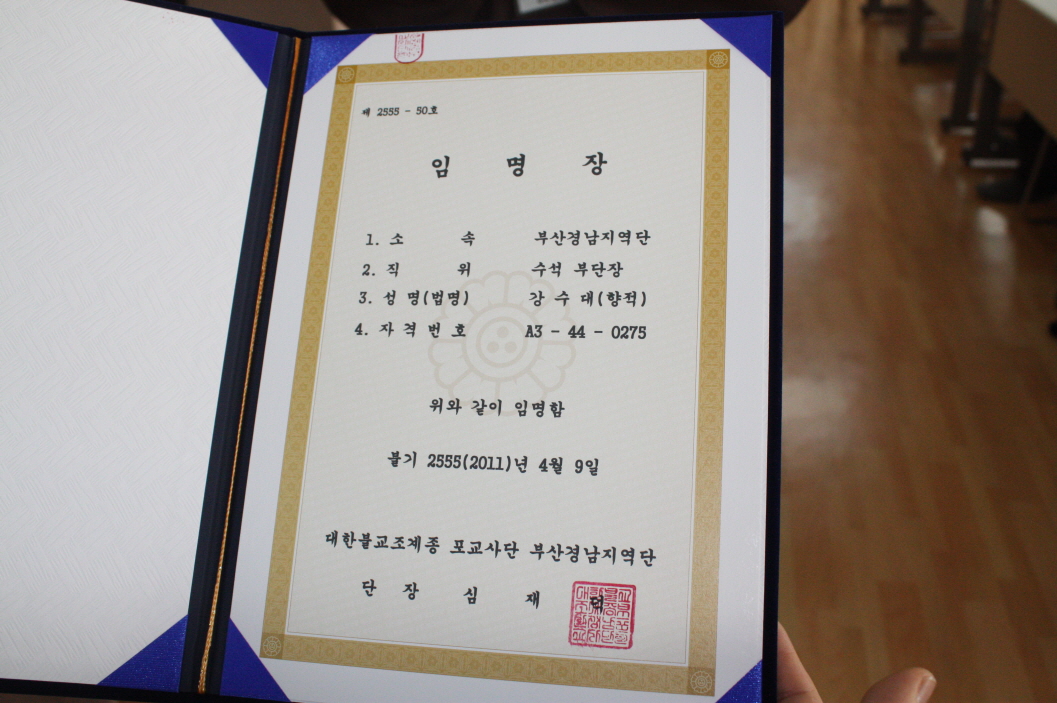 제 2555 - 50호
임 명 장
1. 소 속 부산경남지역단
2. 직 위 수석 부단장
3. 성 명(법명) 강 수 대(향적)
4. 자 격 번 호 A3 - 44 - 0275
위와 같이 임명함
불기 2555(2011)년 4월 9일
대한불교조계종 포교사단 부산경남지역단
단 장 심 재 덕